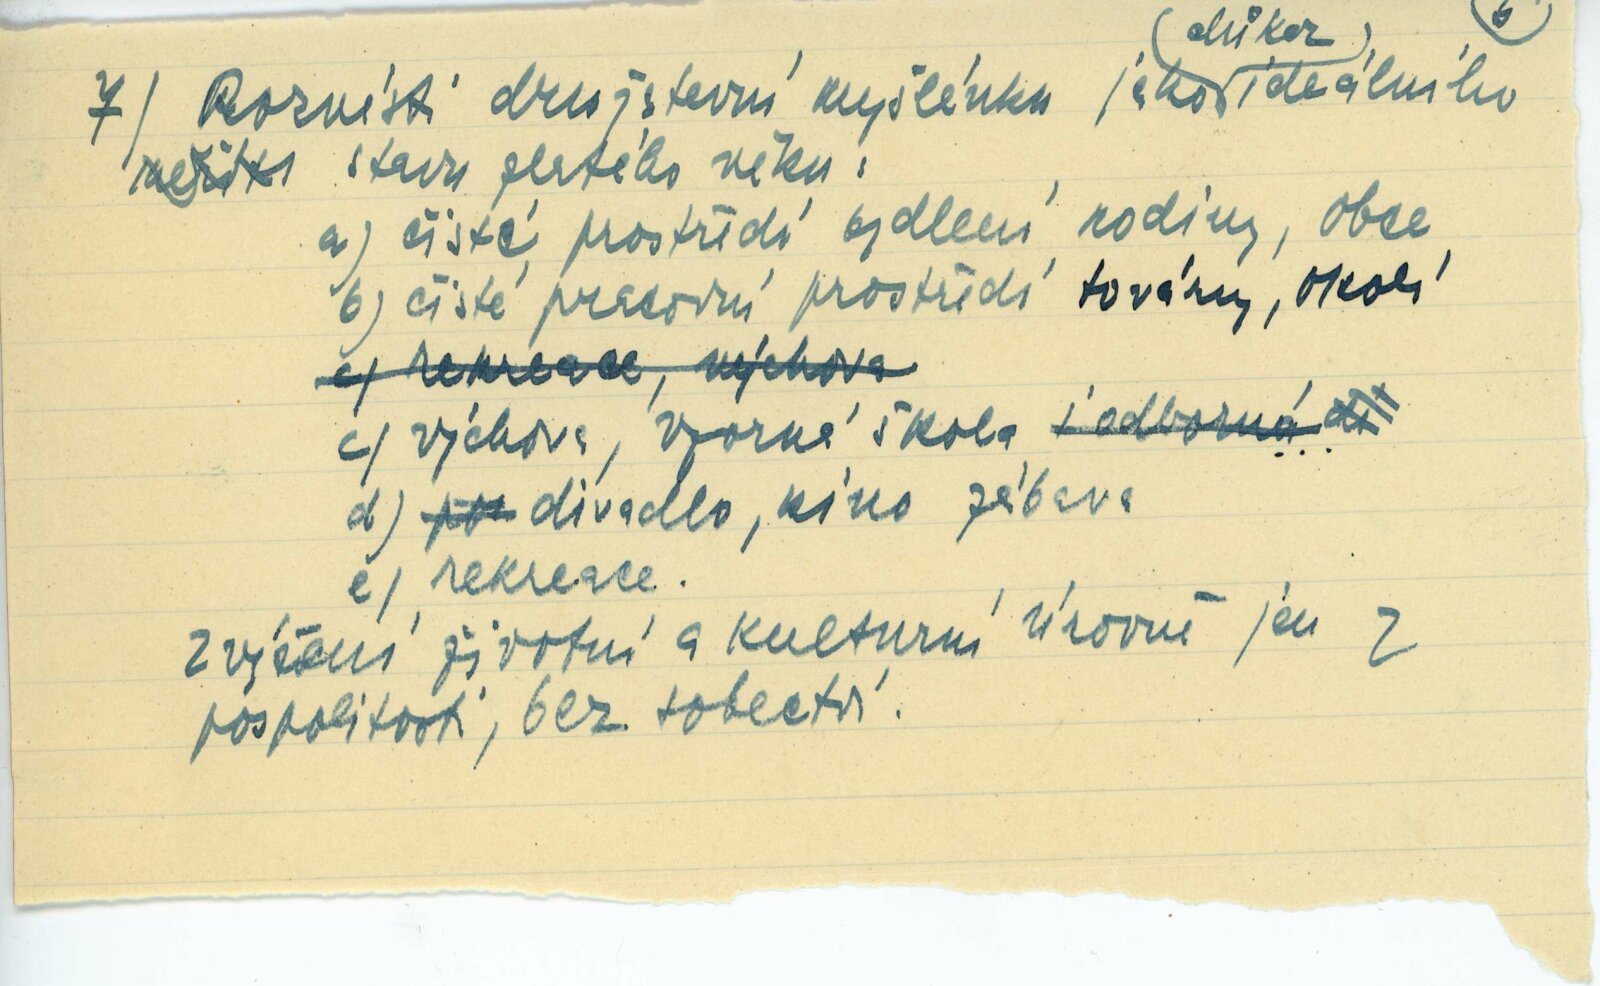 6
důkaz
7) Roznésti družstevní myšlénku jako ideálního
stavu zlatého věku:
a) čisté prostředí bydlení rodiny, obce
b) čisté pracovní prostředí továrny, okolí
c) rekreace, výchova
c) výchova, vzorná škola i odborná
d) po divadlo, kino zábava
e) rekreace.
Zvýšení životní a kulturní úrovně jen z
pospolitosti, bez sobectví.